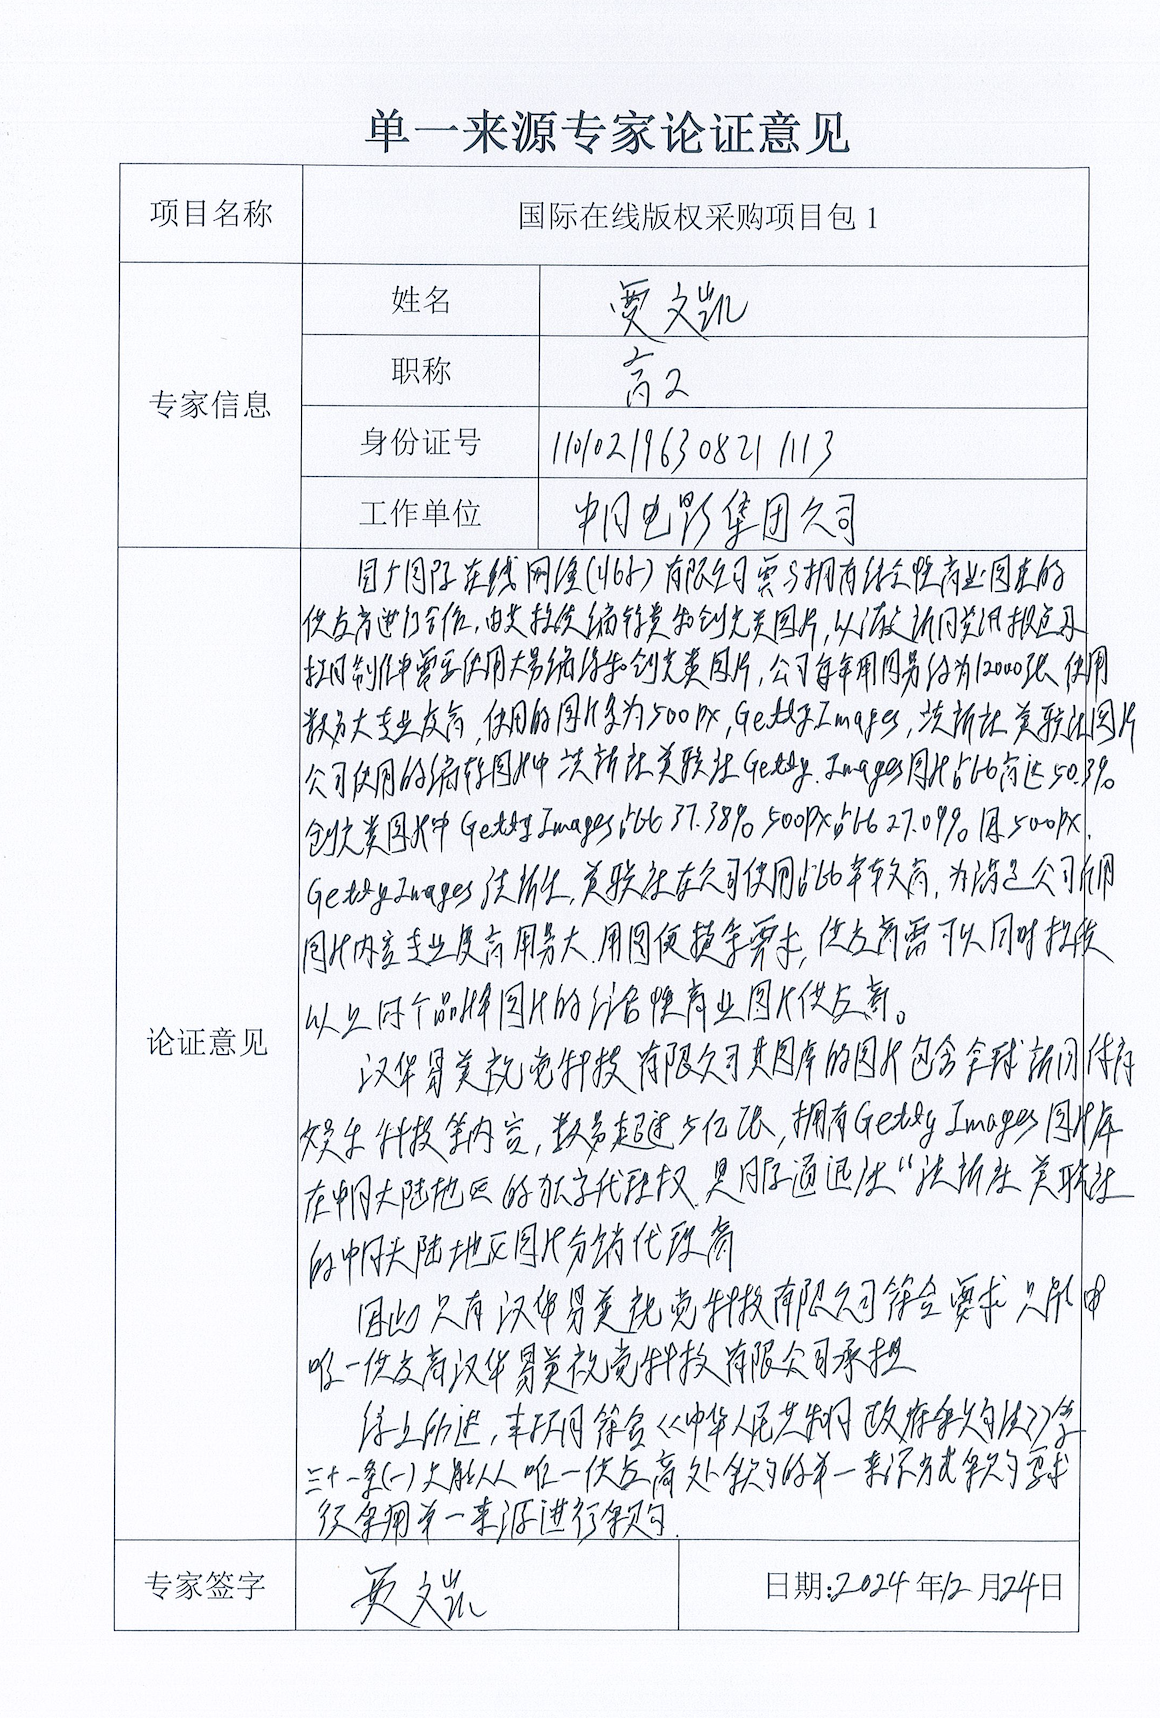 单一来源专家论证意见
项目名称
国际在线版权采购项目包 1
专家信息
姓名
贾文凯
职称
高工
身份证号
110102196308211113
工作单位
中国电影集团公司
论证意见
国广国际在线网络(北京)有限公司需与拥有综合性商业图库的
供应商进行合作,由其提供编辑类和创意类图片,以满足新闻资讯报道及
栏目制作中需要使用大量编辑和创意类图片,公司每年用图量约为12000张,使用
数量大专业度高,使用的图片多为500px,Getty Images,法新社 美联社图片
公司使用的编辑图片中 法新社 美联社 Getty Images图片占比高达50.3%
创意类图片中 Getty Images占比37.38% 500px占比27.09% 因500px,
Getty Images 法新社,美联社在公司使用占比率较高,为满足公司所用
图片内容专业度高 用量大 用图便捷等要求,供应商需可以同时提供
以上四个品牌图片的综合性商业图片供应商。
汉华易美视觉科技有限公司其图库的图片包含全球新闻 体育
娱乐 科技等内容,数量超过5亿张,拥有Getty Images图片库
在中国大陆地区的独家代理权 是国际通讯社“法新社 美联社
的中国大陆地区图片分销代理商
因此 只有汉华易美视觉科技有限公司符合要求 只能由
唯一供应商汉华易美视觉科技有限公司承担
综上所述,本项目符合《中华人民共和国政府采购法》第
三十一条(一)只能从唯一供应商处采购的单一来源方式采购要求
须采用单一来源进行采购.
专家签字
贾文凯
日期:2024年12月24日